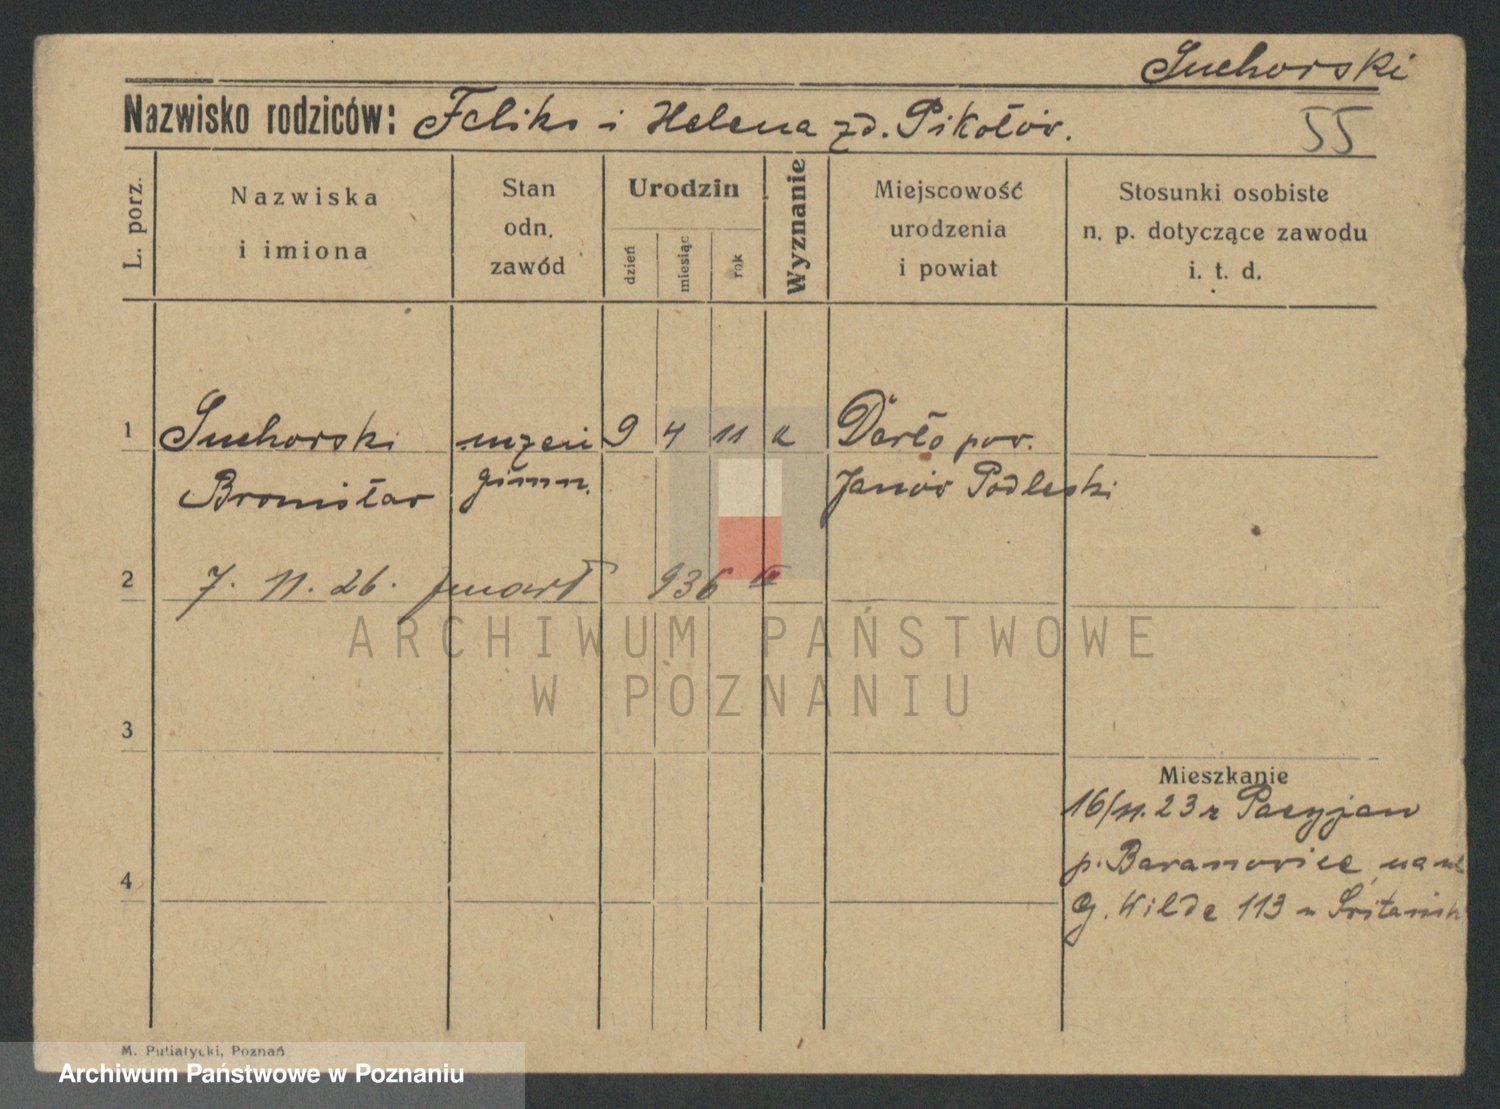 Suchorski
Nazwisko rodziców: Feliks i Helena zd. Pikołów.
55
L. porz.
Nazwiska
i imiona
Stan
odn.
zawód
Urodzin
dzień
miesiąc
rok
Wyznanie
Miejscowość
urodzenia
i powiat
Stosunki osobiste
n. p. dotyczące zawodu
i. t. d.
1 Suchorski uczeń 9 4 11 k Darło pow.
Bronisław gimn. Janów Podleski
2 7. 11. 26. 936
ARCHIWUM PAŃSTWOWE
W POZNANIU
3
Mieszkanie
16/11.23 r
p. Baranowice na
4
G. Wilde 113 u
M. Putiatycki, Poznań
Archiwum Państwowe w Poznaniu